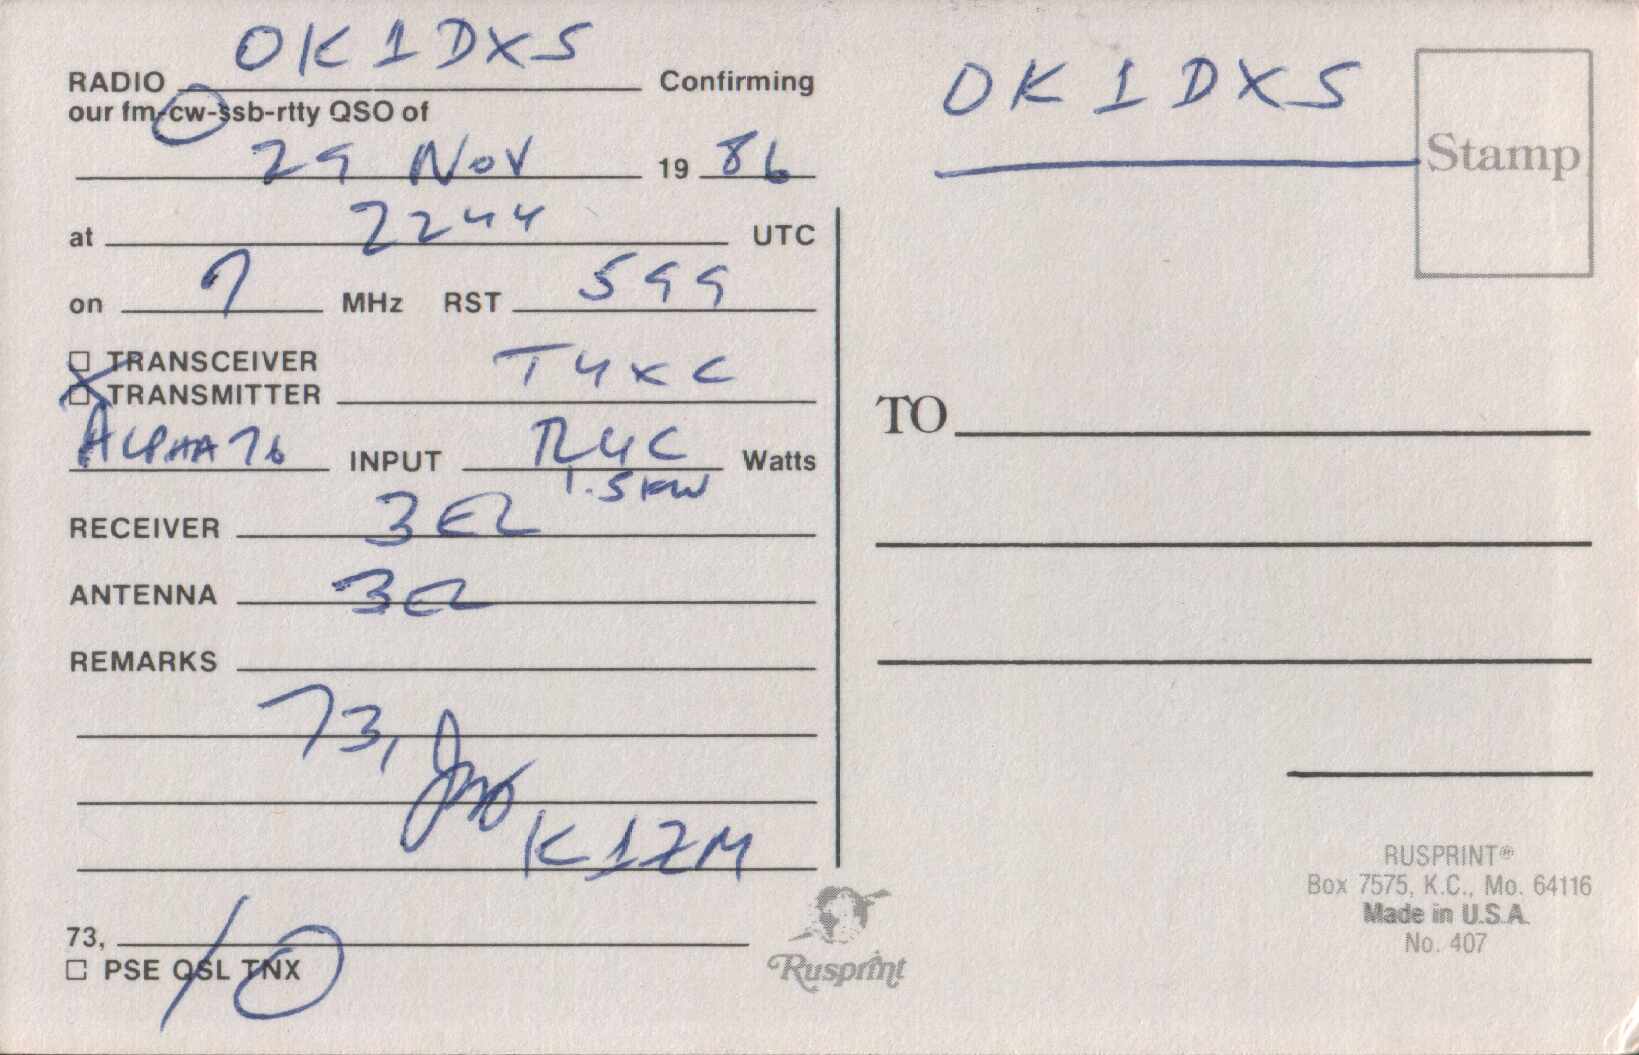 RADIO OK1DXS Confirming
our fm-cw-ssb-rtty QSO of
29 Nov 19 86
at 2244 UTC
on 7 MHz RST 599
☐ TRANSCEIVER
☒ TRANSMITTER T4XC
ALPHA 76 INPUT R4C Watts
1.5KW
RECEIVER 3EL
ANTENNA 3EL
REMARKS
73,
K1ZM
73,
☐ PSE QSL TNX
Rusprint
OK1DXS
Stamp
TO
RUSPRINT®
Box 7575, K.C., Mo. 64116
Made in U.S.A.
No. 407